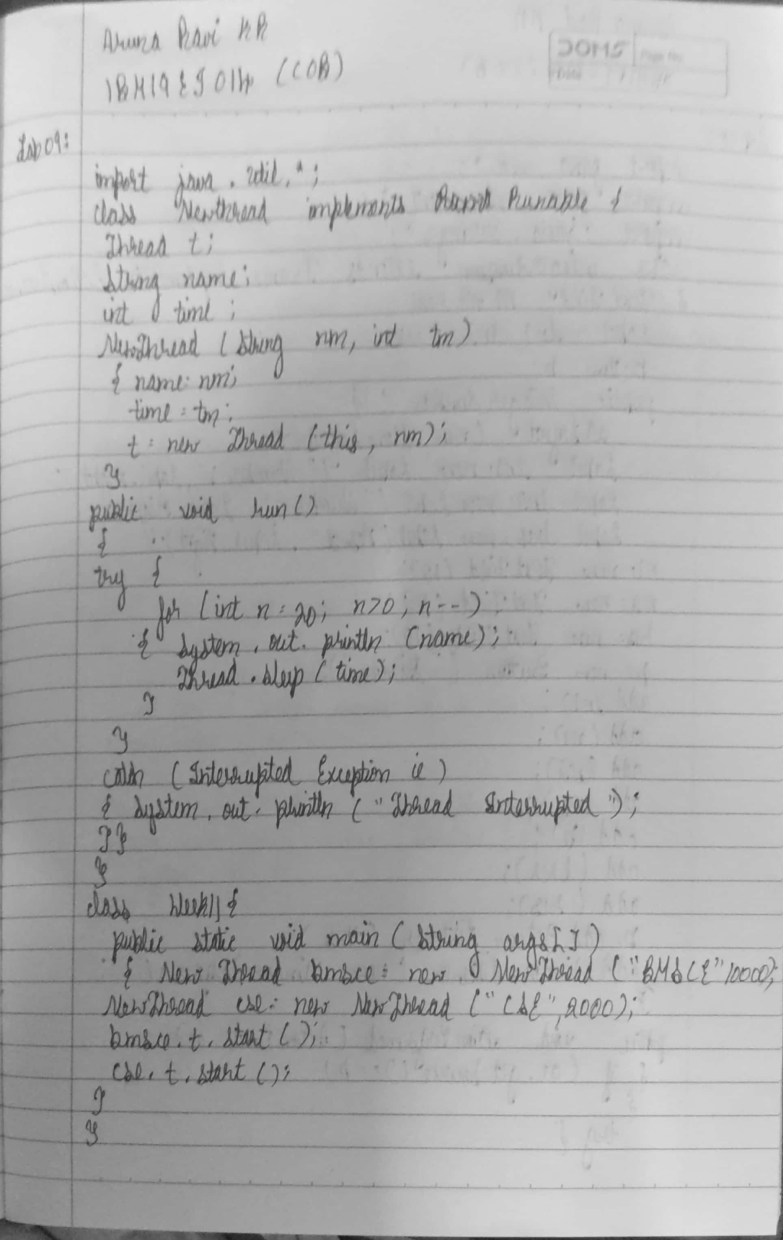 Aruna Ravi KR
1BM19EI014 (COB)
DOMS Page No.
Date
Lab 09:
import java . util . * ;
class Newthread implements Runnable {
Thread t ;
String name ;
int time ;
NewThread ( String nm, int tm )
{ name = nm;
time = tm ;
t = new Thread ( this , nm ) ;
}
public void run ( )
{
try {
for ( int n = 20 ; n > 0 ; n -- )
{ System . out . println ( name ) ;
Thread . sleep ( time ) ;
}
}
catch ( Interrupted Exception ie )
{ System . out . println ( " Thread Interrupted " ) ;
} }
}
class Week11 {
public static void main ( String args [ ] )
{ New Thread bmsce = new NewThread ( "BMSCE" 10000);
NewThread cse = new NewThread ( " CSE ", 2000 ) ;
bmsce . t . start ( ) ;
cse . t . start ( ) ;
}
}